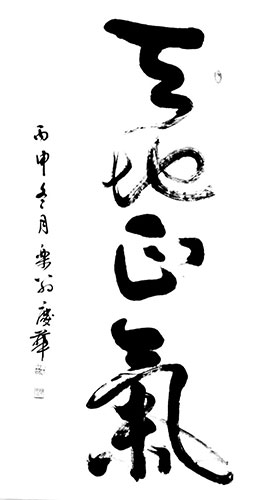 天地正氣
丙申冬月樂翁慶華